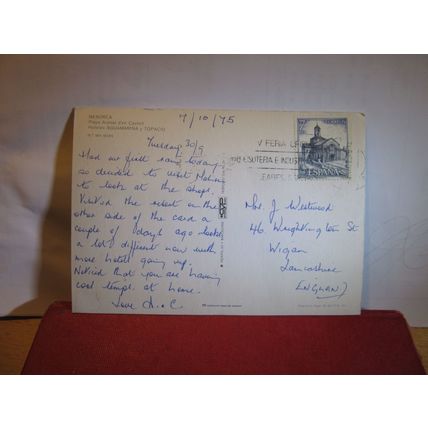 7/10/75
MENORCA
Playa Arenal d'en Castell
Hoteles AGUAMARINA y TOPACIO
Tuesday 30/9
Had our first rain today,
so decided to visit Mahon
to look at the shops.
Visited the resort on the
other side of the card a
couple of days ago looks
a lot different now with
more hotels going up.
Noticed that you are having
cool temps. at home.
Love A. & C.
V FERIA
E INDUS
ESPAÑA
Mrs J Westwood
46 Wrightington St
Wigan
Lancashire
ENGLAND